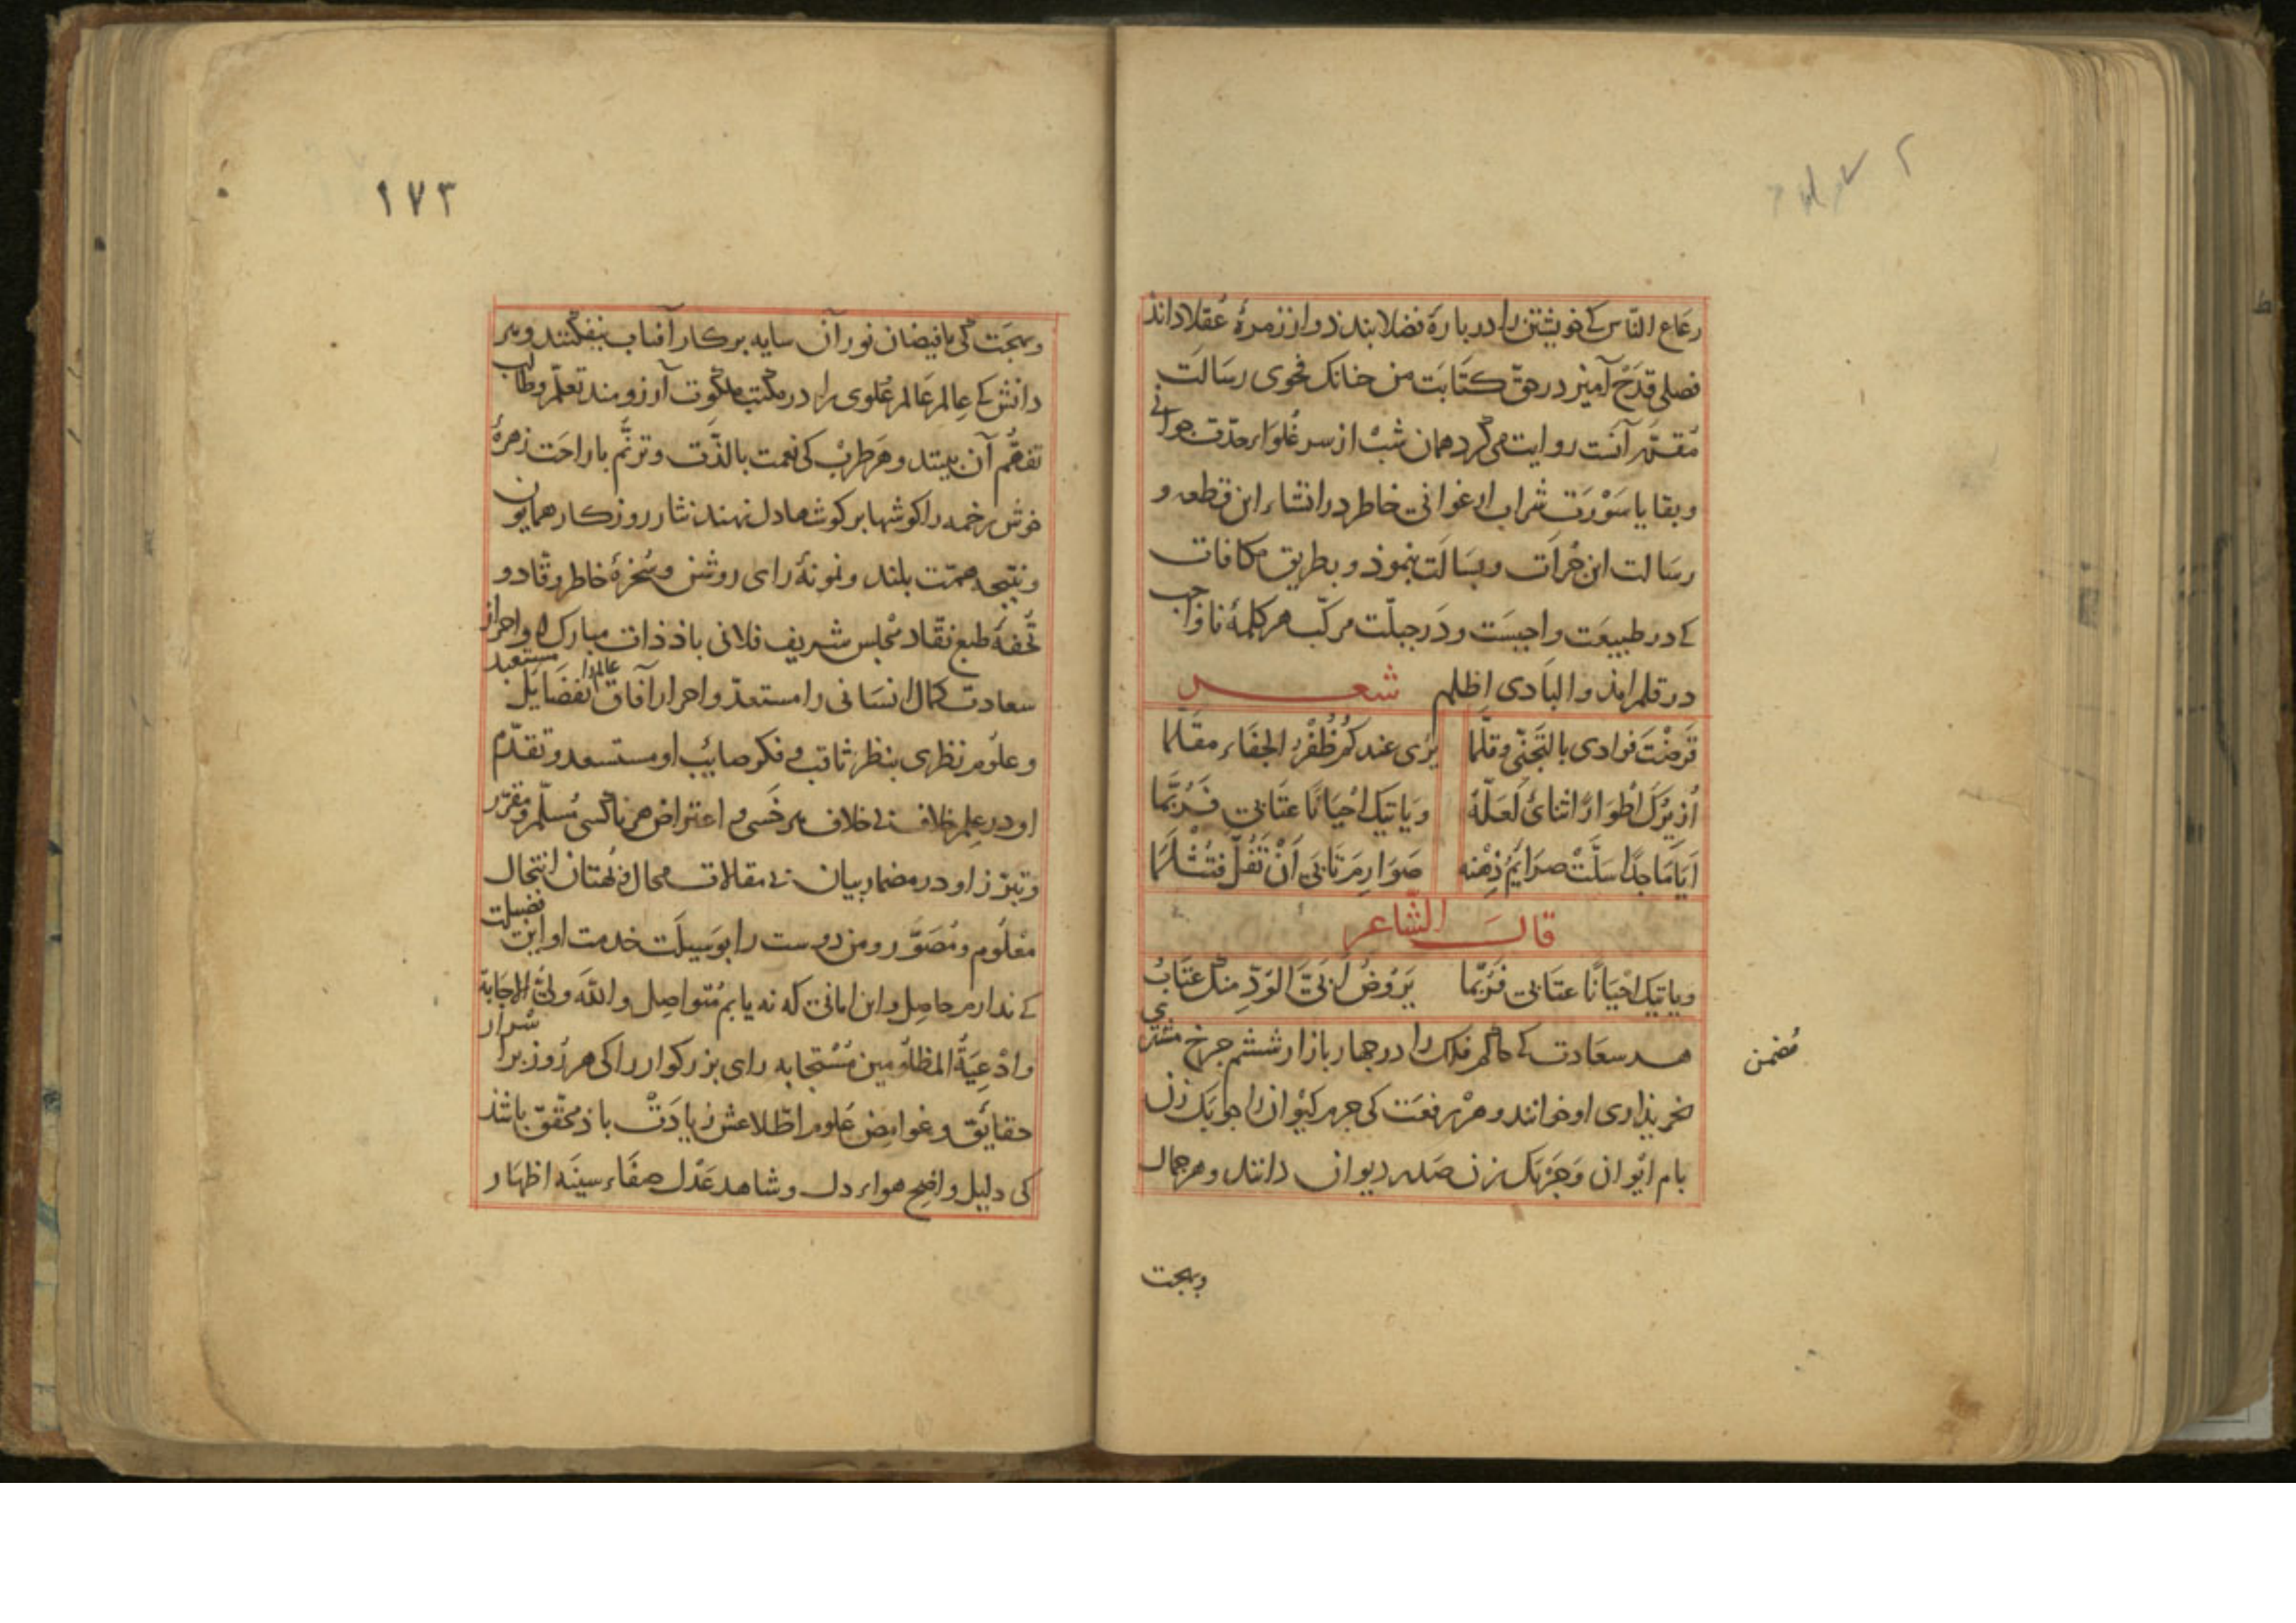 رعَاع النّاس کے خویشتن را در بارهٔ فضلا بندند و از زمرهٔ عُقلا دانند
فصلی قَدَحْ آمیز در حقّ کتَابَت من چنانک فحوی رسَالَت
مُقدّمهٔ آنَست روایت می کرد همان شَبْ از سر غُلَوَاء حدّت جوانی
و بقایا سَوْرَت شراب ارغوانی خاطر در انشاء این قطعه و
رسَالت این جُرأت و بسَالَت بنموذ و بطریق مکافات
کے در طبیعَت واجبَست و دَر جبلّت مرکّب هر کلمهٔ ناواجب
در قلم امذ و البَادی اظلم شعر
قَرضْتَ فوادی بالتَجنّی و قلّما یُرَی عندکُم ظُفْرُ الجَفَاء مقلّما
اُذیرُکَ اطْوَارًا ثنائی لَعَلّهُ وَیَاتیک احْیَانًا عتَابی فَرُبَّمَا
اَیَا مَاجدًا سَلَّتْ صرَایمُ ذِهْنه صَوَارِمَ تَابَی اَنْ تُفَلَّ فتُثْلَمَا
قال الشّاعر
ویاتیک احْیَانًا عتَابی فَرُبّما یَرُوضُ اَبیَّ الوُدِّ منک عتَابُ
هر سعَادت کے حاکم فلک را در چهار بازار ششم چرخ مشتری
مُضمن
بخریذاری او خوانند و هر رفعَت کی جرم کیْوان را چوبَک زن
بام ایْوان وَ جَزْیَک زن صَدر دیوان دانند و هر جمال
وبهجت
١٧٣
وبهجَت کی با فیضان نور آن سایه بر کار آفتاب بیفکنند و هر
دانش کے عِالم عَالم عُلوی را در مکتب ملکوت آرزومند تعلّم و طالب
تفهُّم آن بینند و هَر طرَبْ کی نعمت با لذّت و ترنُّم با راحَت زهرهٔ
خوش زخمه را کوشها بر کوشهٔ دل نهند نثار روزکار همایون
و نتیجه همّت بلند و نمونهٔ رای روشن و سُخرهٔ خاطر وقّاد و
تُحفهٔ طبع نقّاد مجْلس شریف فلانی باذ ذات مبارک او احراز
سعادت کمال انسَانی را مستعدّ و احرار آفاق عالم را بفضَایل مستعبد
و علوم نظری بنظر ثاقب و فکر صایب او مستسعد و تقدّم
او در علِم خلاف بی خلاف هر خَسی و اعتراض هر ناکسی مُسلّم و مقرّر
و تبرّز او در مضمار بیان بی مقالات محال و بُهتان انتحال
معْلُوم و مُصَوَّر و من دوست را بوَسیلَت خدمت او این فضیلت
کے ندارم حاصِل و این امانی که نه یابم مُتواصِل و اللّه ولیُّ الاجَابة
وادْعِیَةُ المظلومین مُسْتجابه رای بزرکوار را کی هر روز بر اسْرار
حقایق و غوامِض عُلوم اطّلاعش زیادَتْ باذ محقّق باشذ
کی دلیل واضح هواء دل و شاهد عَدْل صفَاء سینَه اظهَار